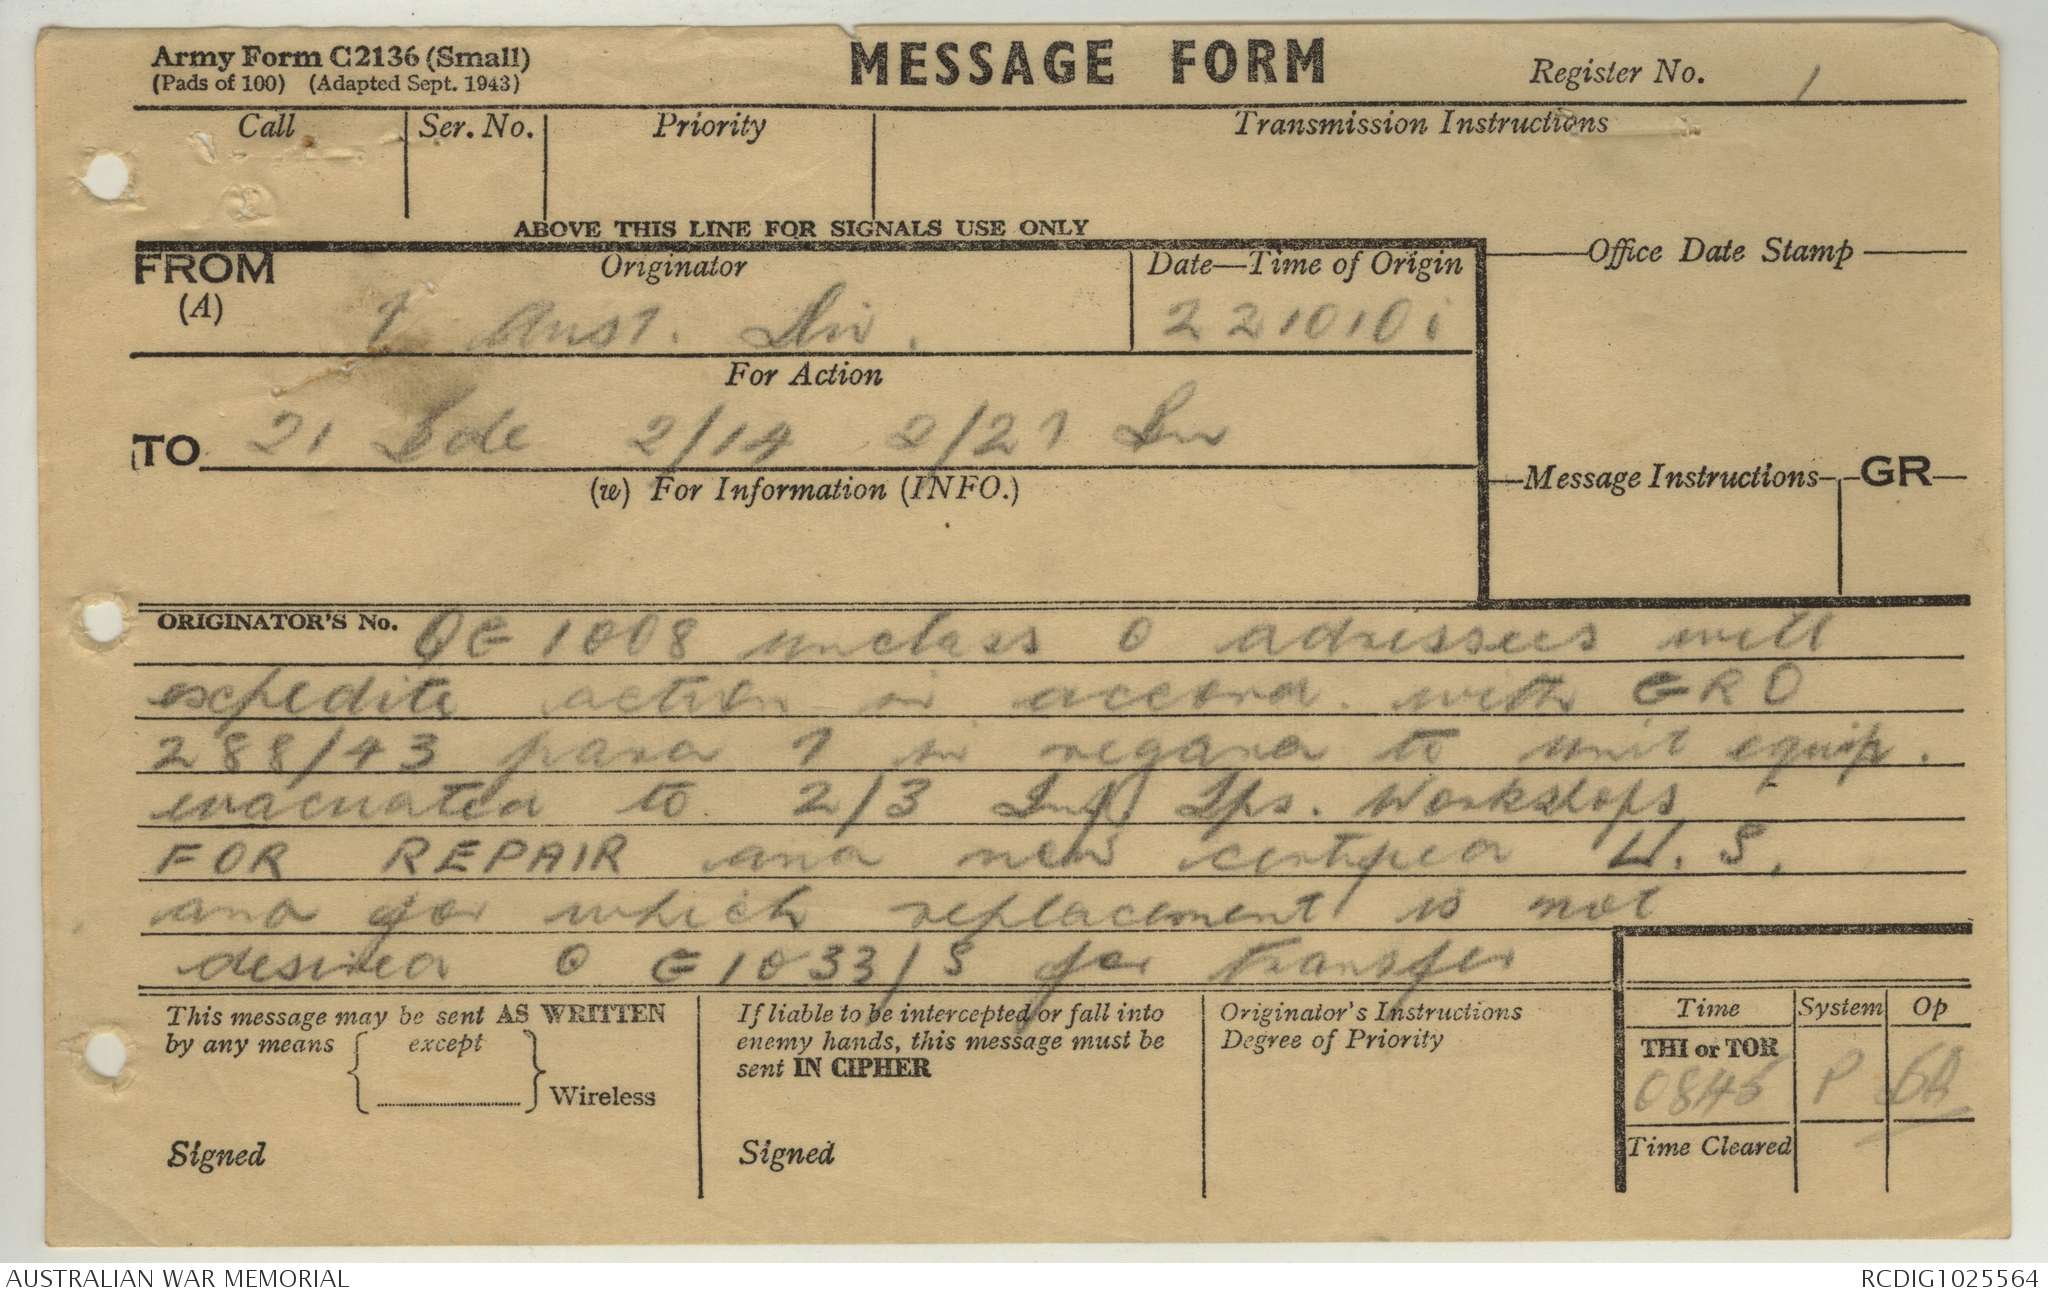 Army Form C2136 (Small)
(Pads of 100) (Adapted Sept. 1943)
MESSAGE FORM
Register No. 1
Call Ser. No. Priority Transmission Instructions
ABOVE THIS LINE FOR SIGNALS USE ONLY
FROM
(A)
Originator
7 Aust. Div.
Date—Time of Origin
221010i
Office Date Stamp
For Action
TO 21 Bde 2/14 2/27 Bn
(w) For Information (INFO.)
Message Instructions GR
ORIGINATOR'S No. OE 1008 unclass O adressees will
expedite action in accord. with GRO
288/43 para 7 in regard to unit equip.
evacuated to 2/3 Inf. Tps. Workshops
FOR REPAIR and new certified U.S.
and for which replacement is not
desired O E1033/S for transfer
This message may be sent AS WRITTEN
by any means except
Wireless
Signed
If liable to be intercepted or fall into
enemy hands, this message must be
sent IN CIPHER
Signed
Originator's Instructions
Degree of Priority
Time System Op
THI or TOR
0845 P
Time Cleared
AUSTRALIAN WAR MEMORIAL
RCDIG1025564